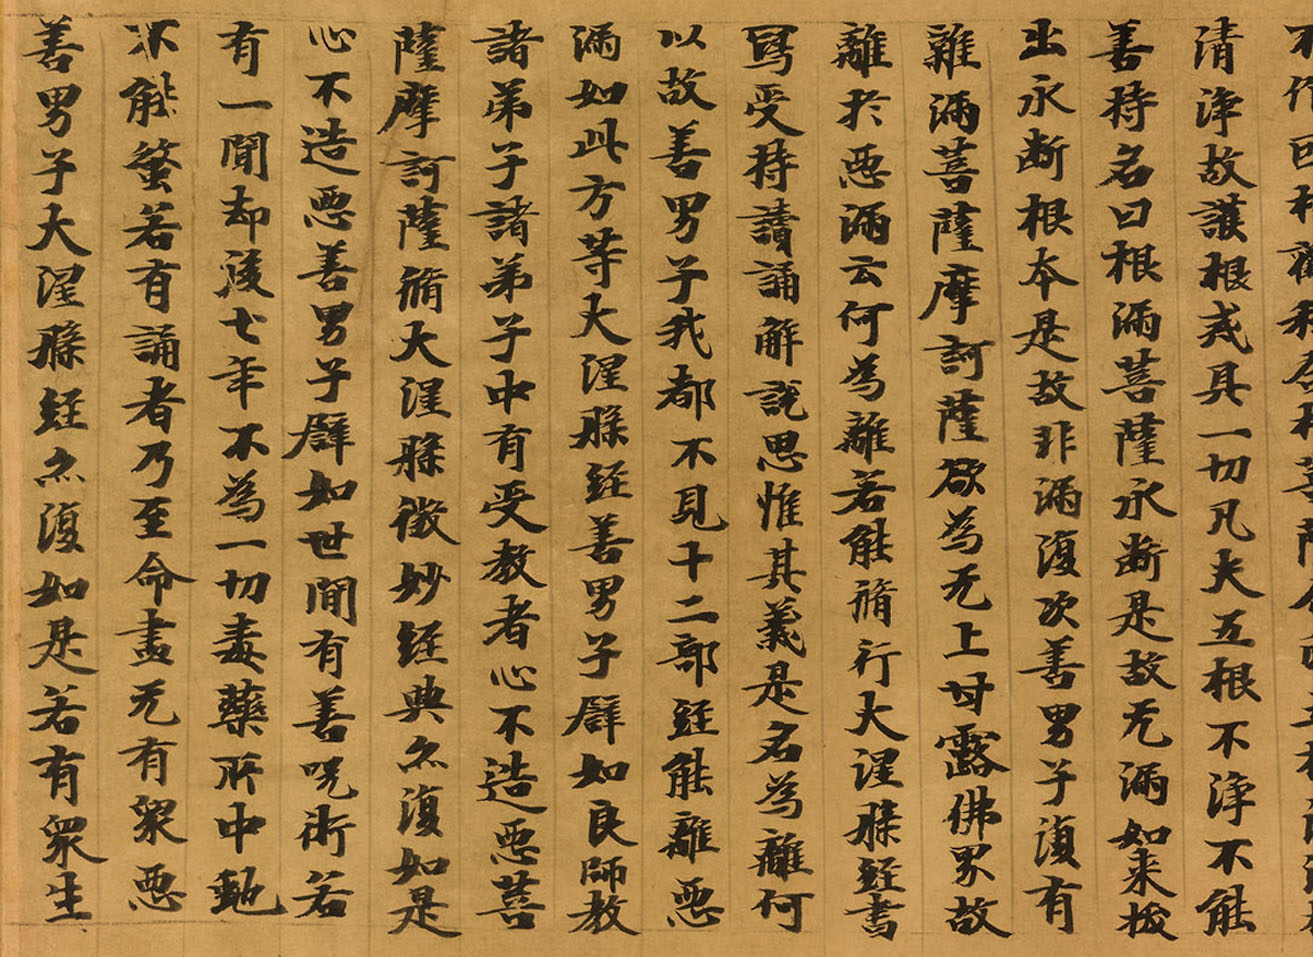 清淨故護根戒具一切凡夫五根不淨不能
善持名曰根漏菩薩永断是故无漏如来拔
出永断根本是故非漏復次善男子復有
離漏菩薩摩訶薩欲為无上甘露佛果故
離於惡漏云何為離若能脩行大涅槃經書
寫受持讀誦解說思惟其義是名為離何
以故善男子我都不見十二部經能離惡
漏如此方等大涅槃經善男子譬如良師教
諸弟子諸弟子中有受教者心不造惡菩
薩摩訶薩脩大涅槃微妙經典亦復如是
心不造惡善男子譬如世間有善呪術若
有一聞却後七年不為一切毒藥所中虵
不能螫若有誦者乃至命盡无有衆惡
善男子大涅槃經亦復如是若有衆生